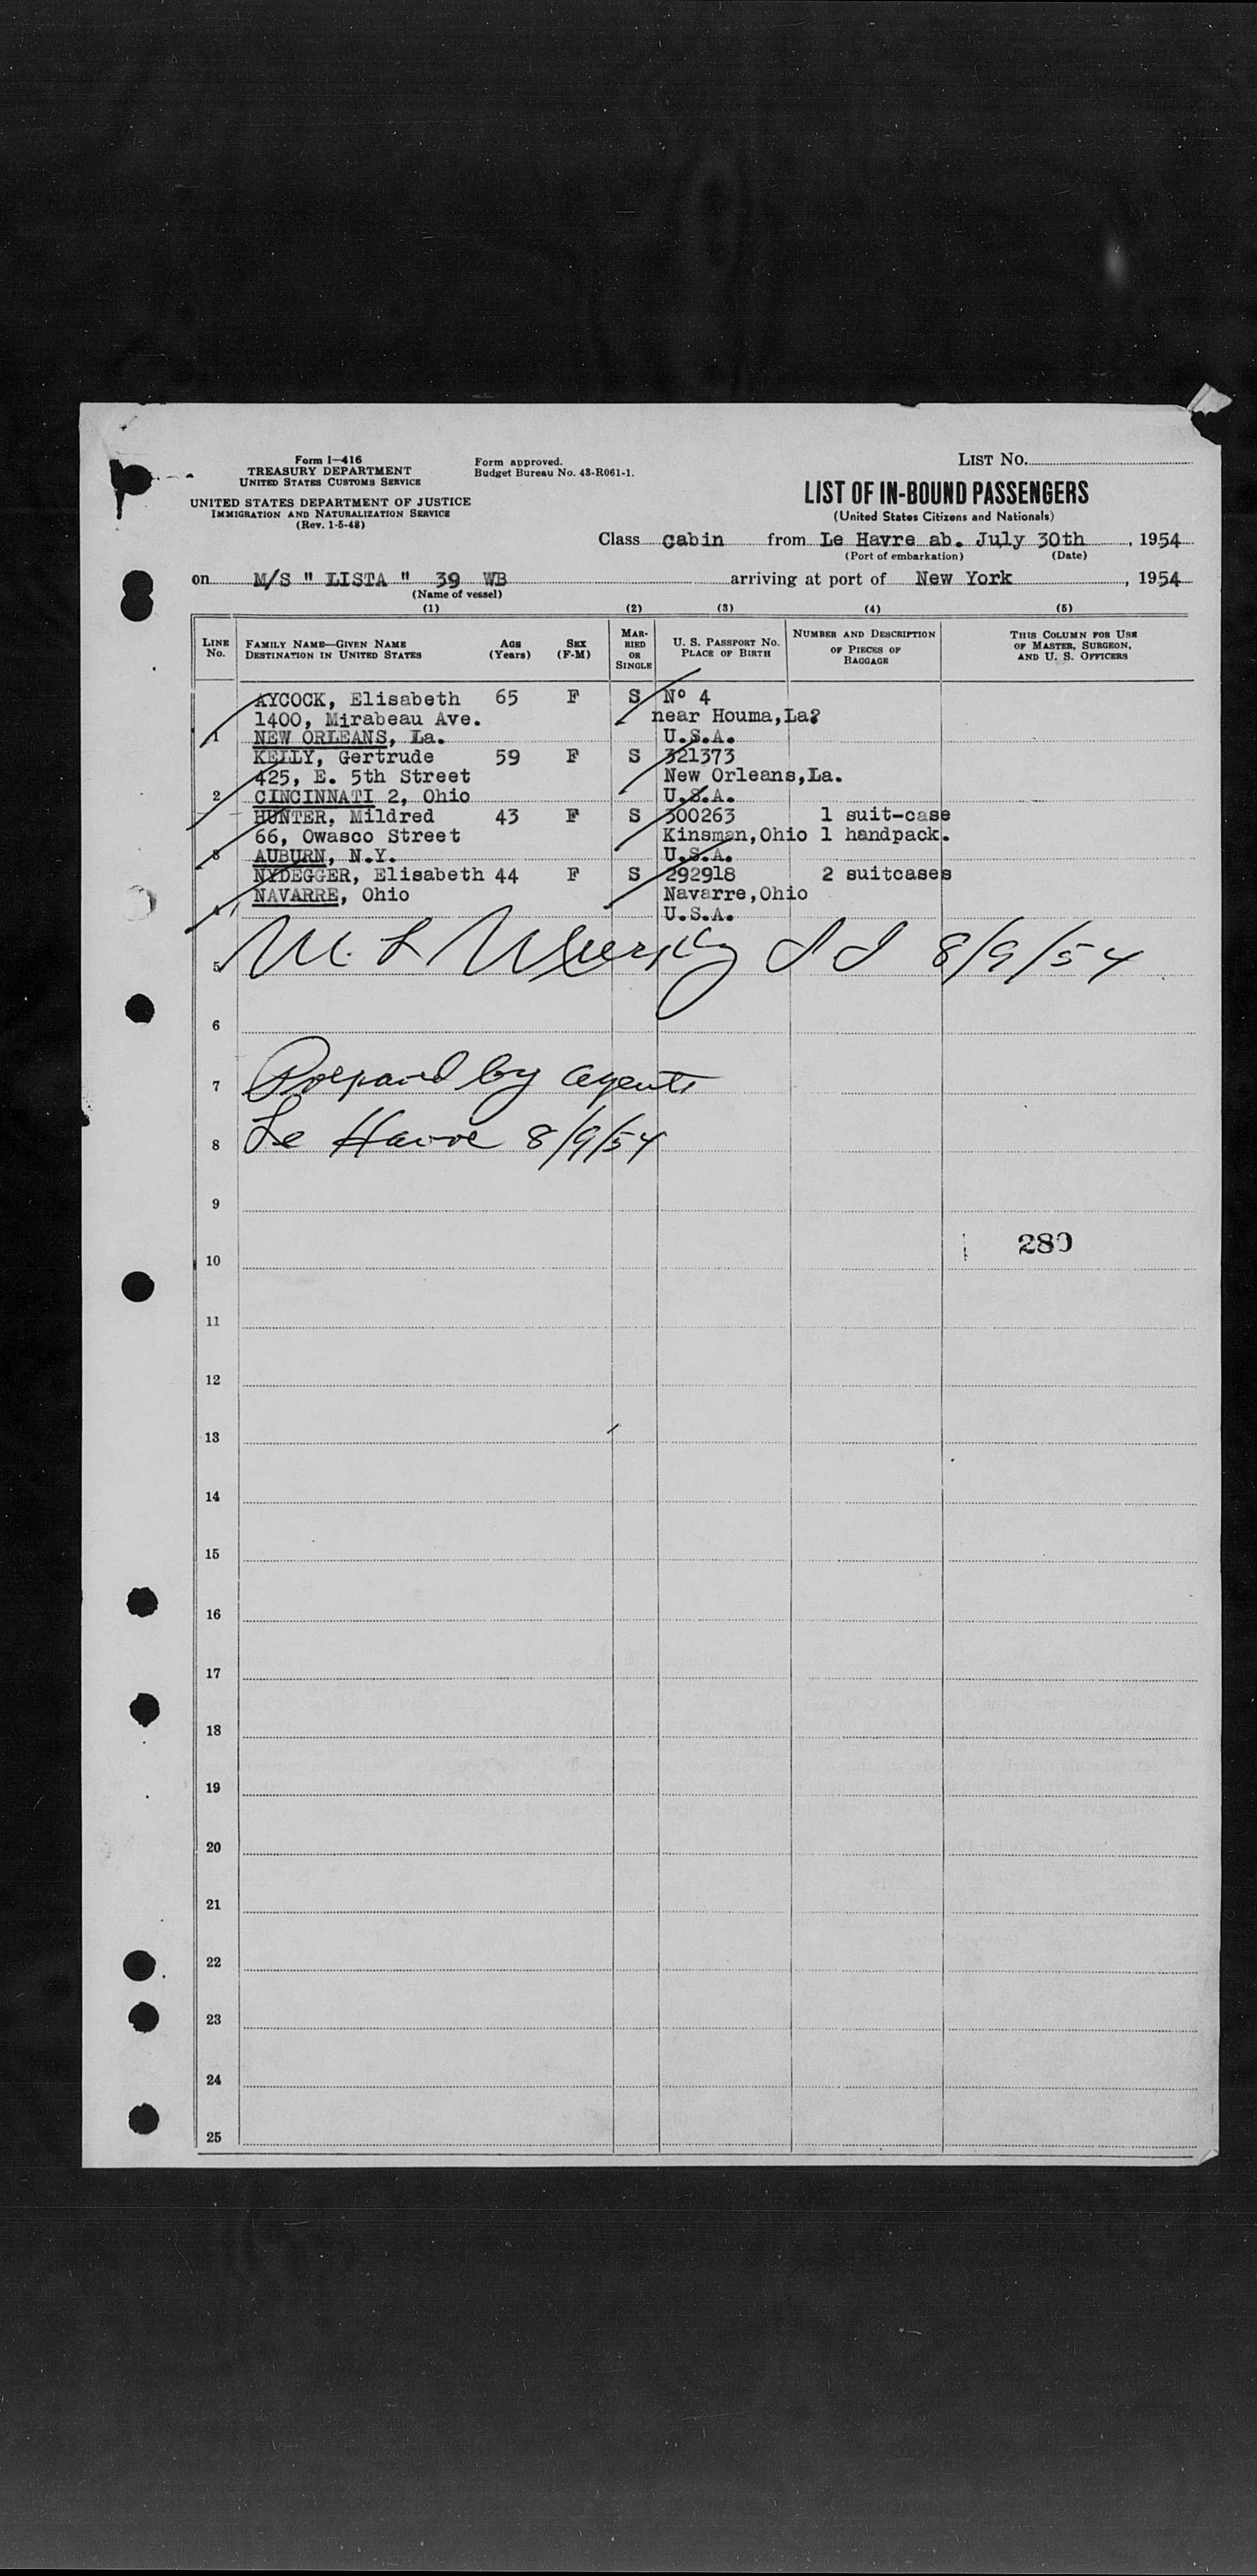 Form I-416
TREASURY DEPARTMENT
UNITED STATES CUSTOMS SERVICE
UNITED STATES DEPARTMENT OF JUSTICE
IMMIGRATION AND NATURALIZATION SERVICE
(Rev. 1-5-48)
Form approved.
Budget Bureau No. 43-R061-1.
LIST No.
LIST OF IN-BOUND PASSENGERS
(United States Citizens and Nationals)
Class cabin from Le Havre ab. July 30th, 1954
(Port of embarkation) (Date)
on M/S " LISTA " 39 WB arriving at port of New York, 1954
(Name of vessel)
(1) (2) (3) (4) (5)
LINE No. FAMILY NAME—GIVEN NAME DESTINATION IN UNITED STATES AGE (Years) SEX (F-M) MARRIED OR SINGLE U. S. PASSPORT No. PLACE OF BIRTH NUMBER AND DESCRIPTION OF PIECES OF BAGGAGE THIS COLUMN FOR USE OF MASTER, SURGEON, AND U. S. OFFICERS
AYCOCK, Elisabeth 65 F S Nº 4
1400, Mirabeau Ave. near Houma,La?
1 NEW ORLEANS, La. U.S.A.
KELLY, Gertrude 59 F S 321373
425, E. 5th Street New Orleans,La.
2 CINCINNATI 2, Ohio U.S.A.
HUNTER, Mildred 43 F S 300263 1 suit-case
66, Owasco Street Kinsman,Ohio 1 handpack.
3 AUBURN, N.Y. U.S.A.
NYDEGGER, Elisabeth 44 F S 292918 2 suitcases
NAVARRE, Ohio Navarre,Ohio
4 U.S.A.
5 M. L 8/9/54
6
7 Prepared by agents
8 Le Havre 8/9/54
9
289
10
11
12
13
14
15
16
17
18
19
20
21
22
23
24
25